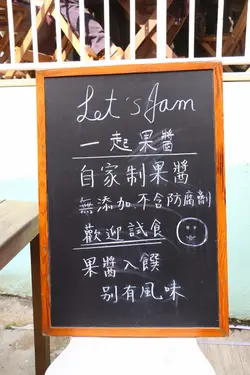 Let's Jam
一起果醬
自家制果醬
無添加 不含防腐劑
歡迎試食
果醬入饌
別有風味